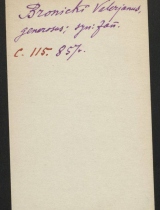 Bronicki Valerjanus,
generosus; syn: Jan.
C. 115. 857.